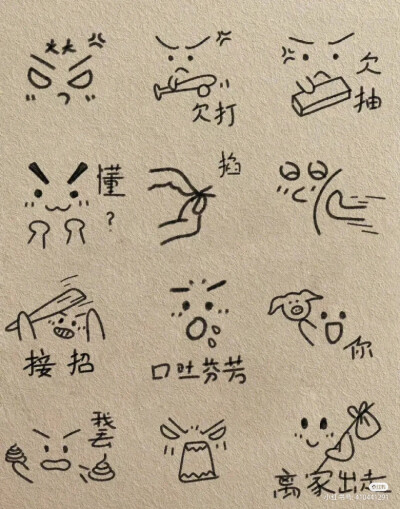 欠打
欠
抽
懂
?
掐
接招
口吐芬芳
你
我
丢
离家出走
小红书号:410441291